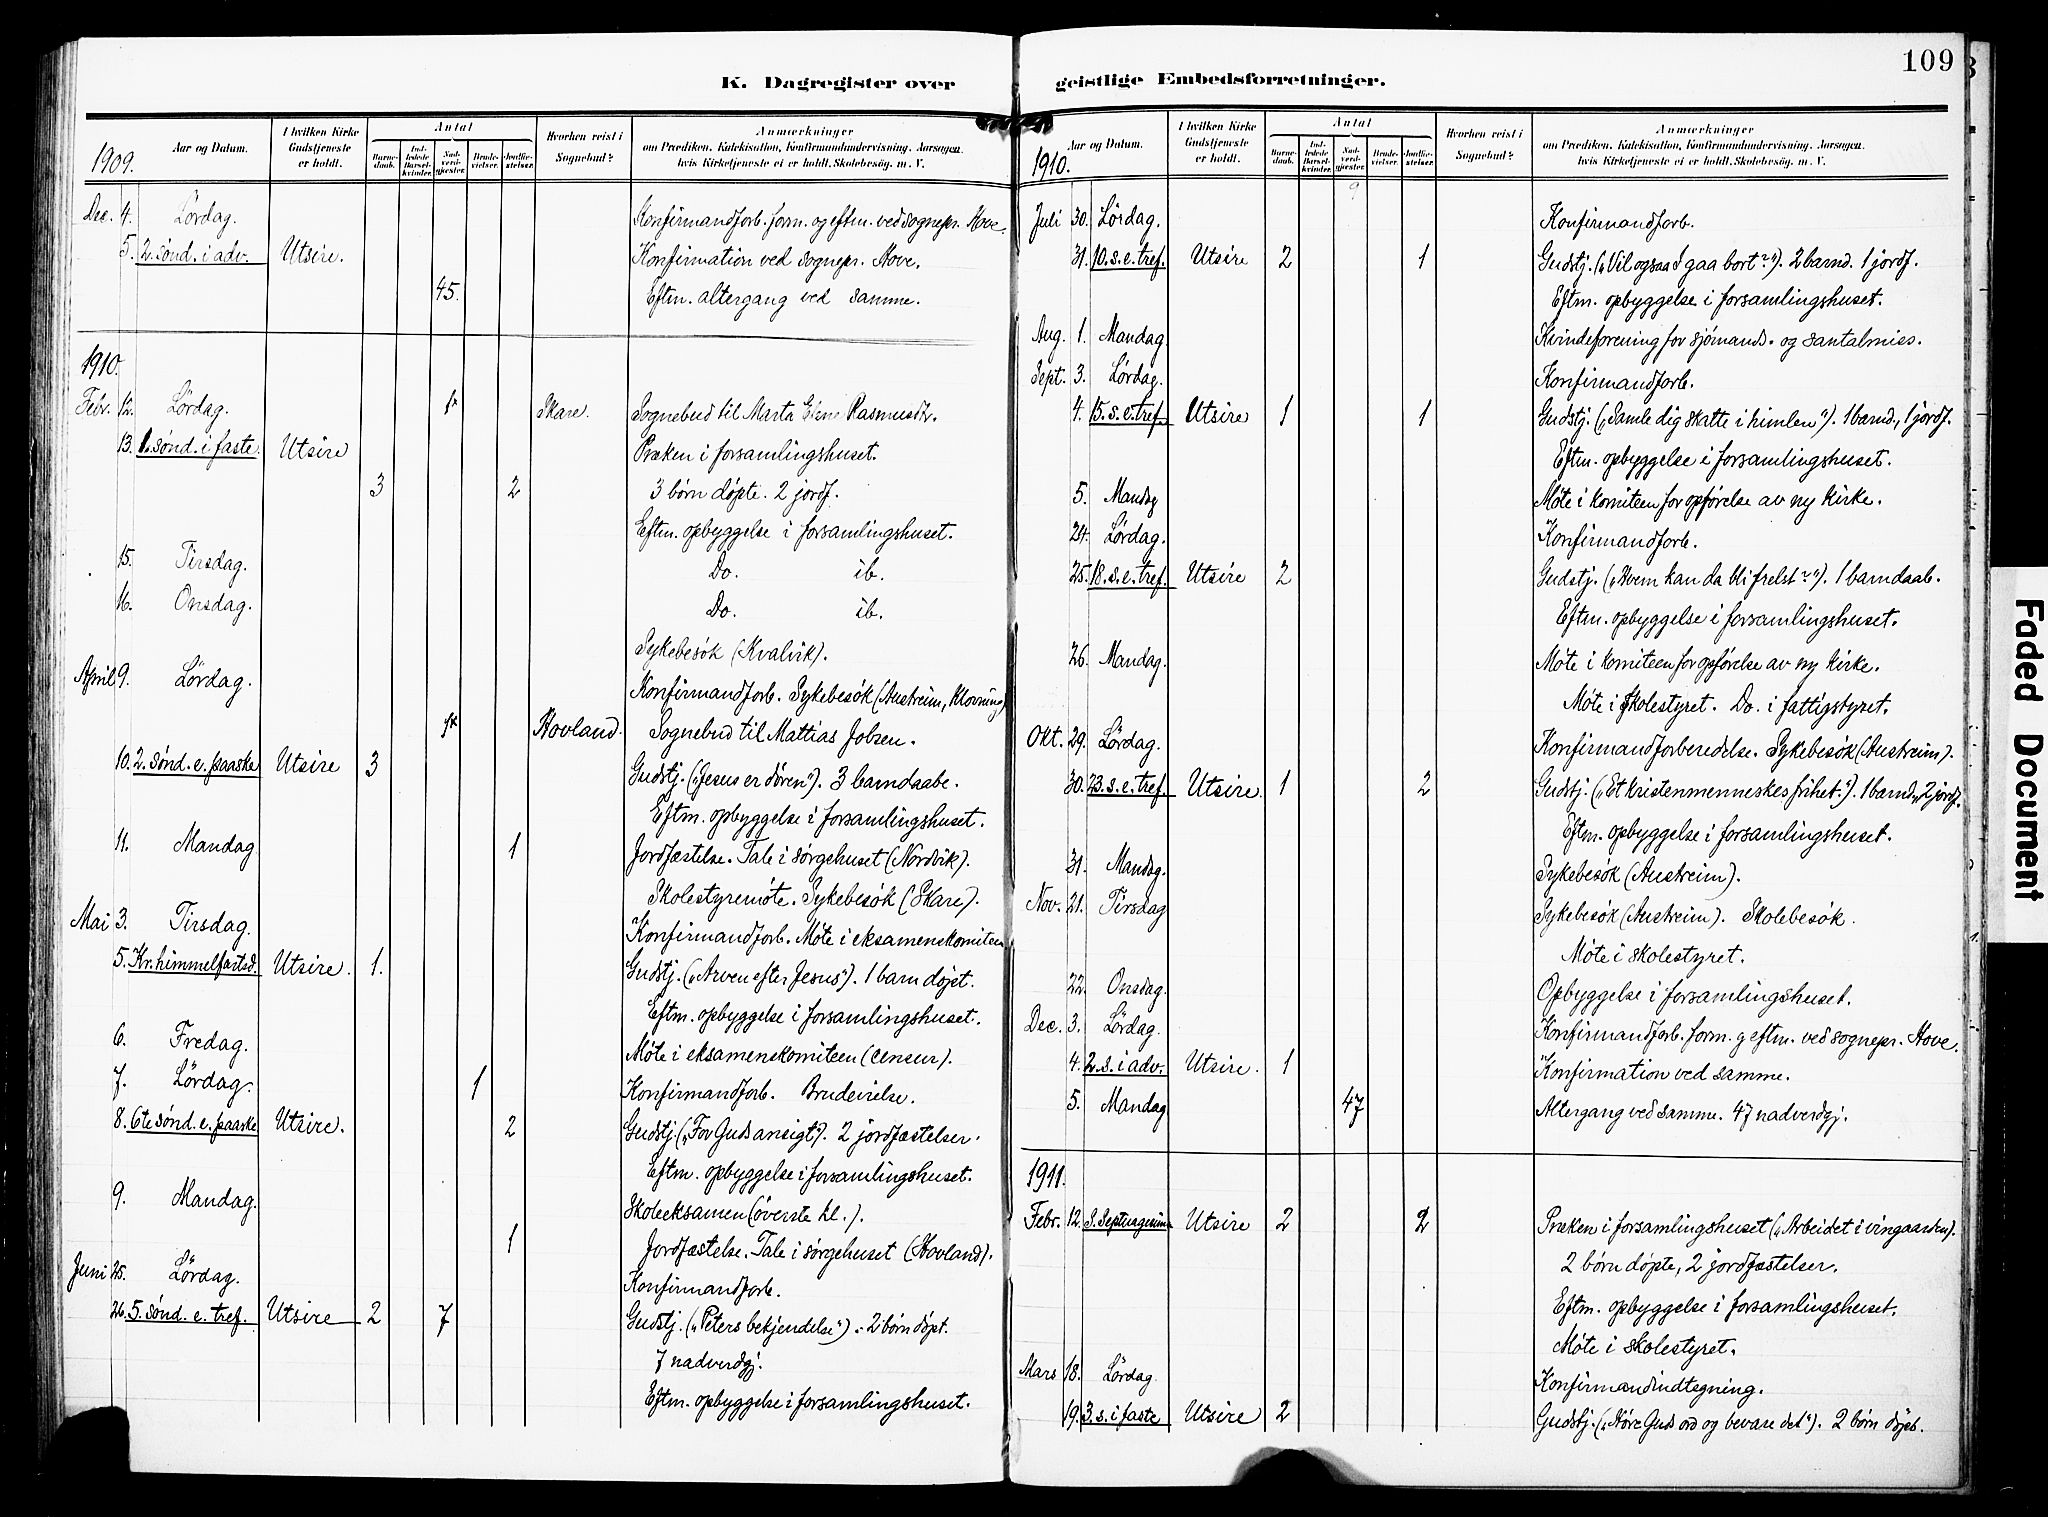 109
K. Dagregister over geistlige Embedsforretninger.
Aar og Datum.
I hvilken Kirke Gudstjeneste er holdt.
Antal
Barnedaab.
Indledede Barselkvinder.
Nadverdgjester.
Brudevielser.
Jordfæstelser.
Hvorhen reist i Sognebud?
Anmærkninger
om Prædiken, Katekisation, Konfirmandundervisning. Aarsagen,
hvis Kirketjeneste ei er holdt. Skolebesøg. m. V.
1909.
Dec. 4. Lørdag. Konfirmandforb. form. og eftm. ved sognepr. Hove.
5. 2. sønd. i adv. Utsire. Konfirmation ved sognepr. Hove.
45. Eftm. altergang ved samme.
1910.
Febr. 12. Lørdag. Skare. Sognebud til Marta Rasmusdr.
13. 1. sønd. i faste. Utsire Præken i forsamlingshuset.
3 2 3 børn døpte. 2 jordf.
Eftm. opbyggelse i forsamlingshuset.
15. Tirsdag. Do. ib.
16. Onsdag. Do. ib.
Sykebesøk (Kvalvik).
April 9. Lørdag. Konfirmandforb. Sykebesøk (Austreim, Klovning)
Hovland. Sognebud til Mattias Jobsen.
10. 2. sønd. e. paaske Utsire 3 Gudstj. („Jesus er døren"). 3 barndaabe.
Eftm. opbyggelse i forsamlingshuset.
11. Mandag 1 Jordfæstelse. Tale i sørgehuset (Nordvik).
Skolestyremøte. Sykebesøk (Skare).
Mai 3. Tirsdag. Konfirmandforb. Møte i eksamenskomiteen
5. Kr. himmelfartsd. Utsire. 1. Gudstj. („Arven efter Jesus"). 1 barn døpt.
Eftm. opbyggelse i forsamlingshuset.
6. Fredag. Møte i eksamenskomiteen (censur).
7. Lørdag. 1 Konfirmandforb. Brudevielse.
8. 6te sønd. e. paaske Utsire. 2 Gudstj. („For Guds ansigt"). 2 jordfæstelser.
Eftm. opbyggelse i forsamlingshuset.
9. Mandag. Skoleeksamen (øverste kl.).
1 Jordfæstelse. Tale i sørgehuset (Hovland).
Juni 25. Lørdag. Konfirmandforb.
26. 5. sønd. e. tref. Utsire 2 7 Gudstj. („Peters bekjendelse"). 2 børn døpt.
7 nadverdgj.
Eftm. opbyggelse i forsamlingshuset.
Aar og Datum.
I hvilken Kirke Gudstjeneste er holdt.
Antal
Barnedaab.
Indledede Barselkvinder.
Nadverdgjester.
Brudevielser.
Jordfæstelser.
Hvorhen reist i Sognebud?
Anmærkninger
om Prædiken, Katekisation, Konfirmandundervisning. Aarsagen,
hvis Kirketjeneste ei er holdt. Skolebesøg. m. V.
1910.
Juli 30. Lørdag. Konfirmandforb.
31. 10. s. e. tref. Utsire 2 1 Gudstj. („Vil ogsaa I gaa bort?"). 2 barnd. 1 jordf.
Eftm. opbyggelse i forsamlingshuset.
Aug. 1. Mandag Kvindeforening for sjømands- og santalmiss.
Sept. 3. Lørdag. Konfirmandforb.
4. 15. s. e. tref. Utsire 1 1 Gudstj. („Samle dig skatte i himlen"). 1 barnd., 1 jordf.
Eftm. opbyggelse i forsamlingshuset.
5. Mandag Møte i komiteen for opførelse av ny kirke.
24. Lørdag. Konfirmandforb.
25. 18. s. e. tref. Utsire 2 Gudstj. („Hvem kan da bli frelst?"). 1 barndaab.
Eftm. opbyggelse i forsamlingshuset.
26. Mandag. Møte i komiteen for opførelse av ny kirke.
Møte i skolestyret. Do. i fattigstyret.
Okt. 29. Lørdag. Konfirmandforberedelse. Sykebesøk (Austreim).
30. 23. s. e. tref. Utsire. 1 2 Gudstj. („Et kristenmenneskes frihet."). 1 barnd., 2 jordf.
Eftm. opbyggelse i forsamlingshuset.
31. Mandag. Sykebesøk (Austreim).
Nov. 21. Tirsdag Sykebesøk (Austreim). Skolebesøk.
Møte i skolestyret.
22. Onsdag. Opbyggelse i forsamlingshuset.
Dec. 3. Lørdag. Konfirmandforb. form. g eftm. ved sognepr. Hove.
4. 2. s. i adv. Utsire. 1 Konfirmation ved samme.
5. Mandag 47 Altergang ved samme. 47 nadverdgj.
1911.
Febr. 12. S. Septuagesima Utsire 2 2 Præken i forsamlingshuset („Arbeidet i vingaarden).
2 børn døpte, 2 jordfæstelser.
Eftm. opbyggelse i forsamlingshuset.
Møte i skolestyret.
Mars 18. Lørdag Konfirmandindtegning.
19. 3. s. i faste Utsire 2 Gudstj. („Høre Guds ord og bevare det"). 2 børn døpt.
Faded Document